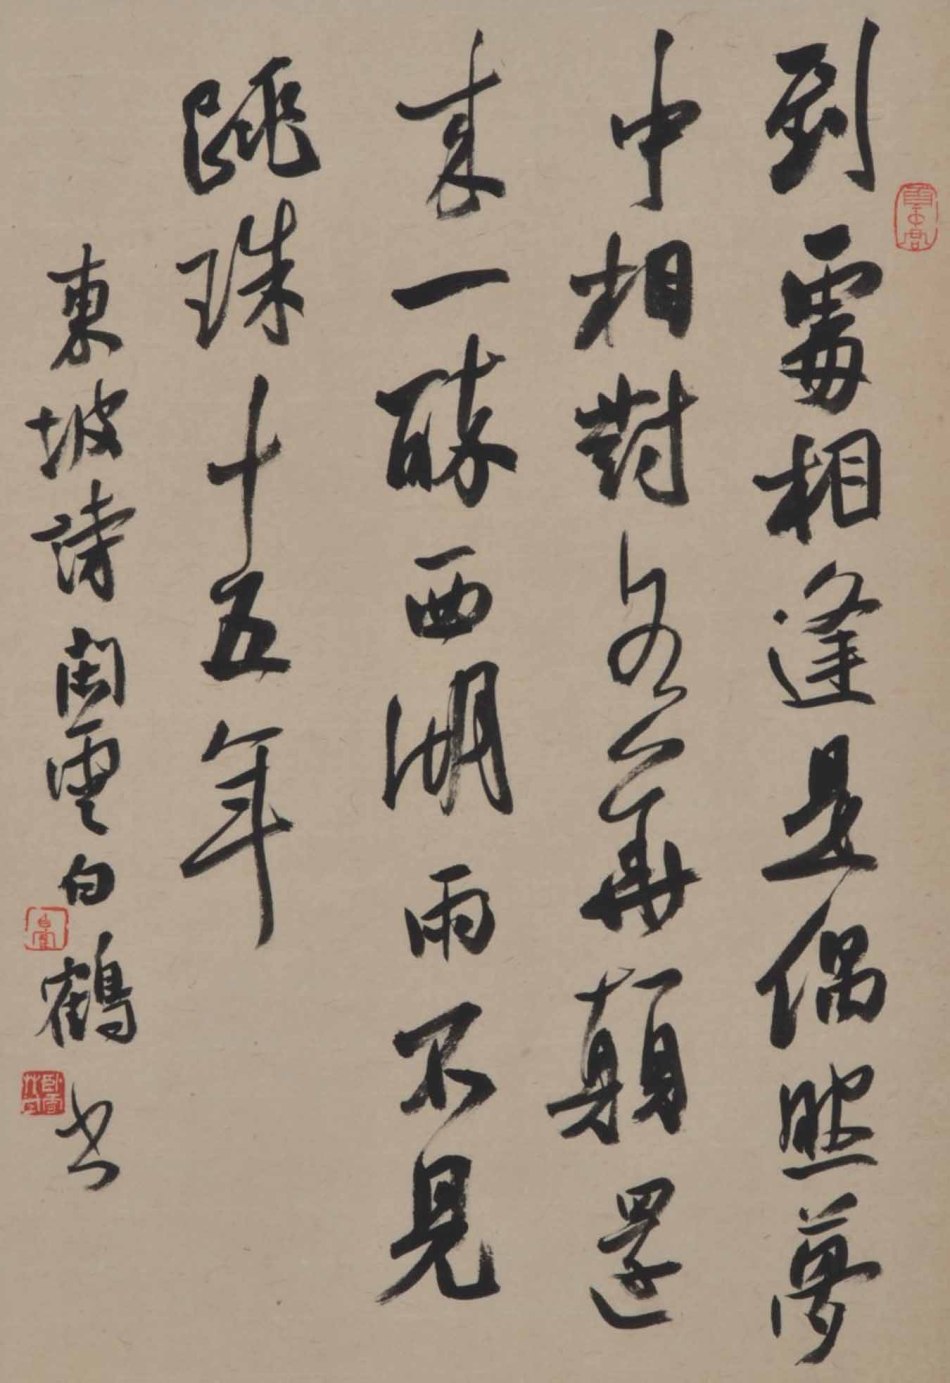 到處相逢是偶然夢
中相對各華顛還
來一醉西湖雨不見
跳珠十五年
東坡詩閑雲白鶴書